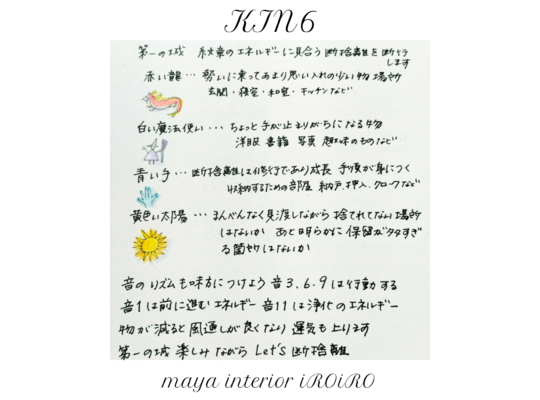 KIN6
第一の城 紋章のエネルギーに見合う断捨離を断行
します
赤い龍… 勢いに乗ってあまり思い入れの少い物 場所
玄関・寝室・和室・キッチンなど
白い魔法使い… ちょっと手が止まりがちになる物
洋服 書籍 写真 趣味のものなど
青い手… 断捨離は修行であり成長 手順が身につく
収納するための部屋 納戸、押入、クローゼットなど
黄色い太陽 … まんべんなく見渡しながら 捨てれてない場所
はないか あと明らかに保留が多すぎ
る箇所はないか
音のリズムも味方につけよう 音3.6.9は行動する
音1は前に進むエネルギー 音11は浄化のエネルギー
物が減ると風通しが良くなり 運気も上ります
第一の城 楽しみながら Let's 断捨離
maya interior iROiRO